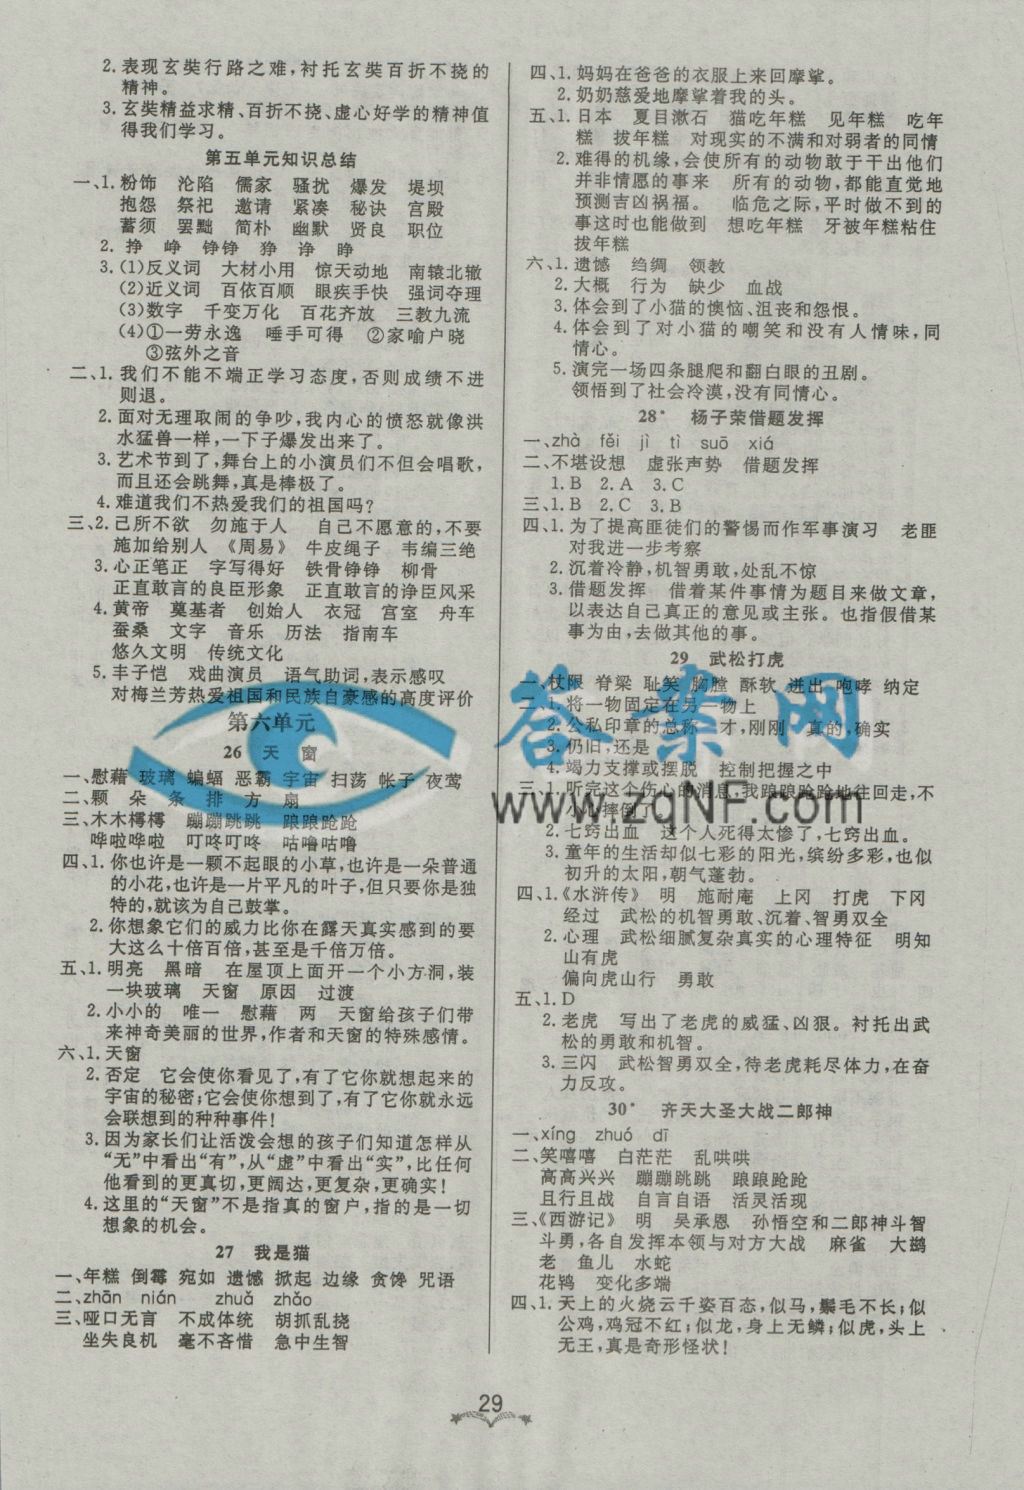 2. 表现玄奘行路之难,衬托玄奘百折不挠的
精神。
3. 玄奘精益求精、百折不挠、虚心好学的精神值
得我们学习。
第五单元知识总结
一、1. 粉饰 沦陷 儒家 骚扰 爆发 堤坝
抱怨 祭祀 邀请 紧凑 秘诀 宫殿
蓄须 罢黜 简朴 幽默 贤良 职位
2. 挣 峥 铮铮 狰 诤 睁
3. (1)反义词 大材小用 惊天动地 南辕北辙
(2)近义词 百依百顺 眼疾手快 强词夺理
(3)数字 千变万化 百花齐放 三教九流
(4)①一劳永逸 唾手可得 ②家喻户晓
③弦外之音
二、1. 我们不能不端正学习态度,否则成绩不进
则退。
2. 面对无理取闹的争吵,我内心的愤怒就像洪
水猛兽一样,一下子爆发出来了。
3. 艺术节到了,舞台上的小演员们不但会唱歌,
而且还会跳舞,真是棒极了。
4. 难道我们不热爱我们的祖国吗?
三、2. 己所不欲 勿施于人 自己不愿意的,不要
施加给别人 《周易》 牛皮绳子 韦编三绝
3. 心正笔正 字写得好 铁骨铮铮 柳骨
正直敢言的良臣形象 正直敢言的诤臣风采
4. 黄帝 奠基者 创始人 衣冠 宫室 舟车
蚕桑 文字 音乐 历法 指南车
悠久文明 传统文化
5. 丰子恺 戏曲演员 语气助词,表示感叹
对梅兰芳热爱祖国和民族自豪感的高度评价
第六单元
26 天 窗
一、慰藉 玻璃 蝙蝠 恶霸 宇宙 扫荡 帐子 夜莺
二、颗 朵 条 排 方 扇
三、木木樗樗 蹦蹦跳跳 踉踉跄跄
哗啦哗啦 叮咚叮咚 咕噜咕噜
四、1. 你也许是一颗不起眼的小草,也许是一朵普通
的小花,也许是一片平凡的叶子,但只要你是独
特的,就该为自己鼓掌。
2. 你想象它们的威力比你在露天真实感到的要
大这么十倍百倍,甚至是千倍万倍。
五、1. 明亮 黑暗 在屋顶上面开一个小方洞,装
一块玻璃 天窗 原因 过渡
2. 小小的 唯一 慰藉 两 天窗给孩子们带
来神奇美丽的世界,作者和天窗的特殊感情。
六、1. 天窗
2. 否定 它会使你看见了,有了它你就想起来的
宇宙的秘密;它会使你看到,有了它你就永远
会联想到的种种事件!
3. 因为家长们让活泼会想的孩子们知道怎样从
“无”中看出“有”,从“虚”中看出“实”,比任何
他看到的更真切,更阔达,更复杂,更确实!
4. 这里的“天窗”不是指真的窗户,指的是一切
想象的机会。
27 我是猫
一、年糕 倒霉 宛如 遗憾 掀起 边缘 贪馋 咒语
二、zhān nián zhuā zhǎo
三、哑口无言 不成体统 胡抓乱挠
坐失良机 毫不吝惜 急中生智
四、1. 妈妈在爸爸的衣服上来回摩挲。
2. 奶奶慈爱地摩挲着我的头。
五、1. 日本 夏目漱石 猫吃年糕 见年糕 吃年
糕 拔年糕 对现实的不满和对弱者的同情
2. 难得的机缘,会使所有的动物敢于干出他们
并非情愿的事来 所有的动物,都能直觉地
预测吉凶祸福。 临危之际,平时做不到的
事这时也能做到 想吃年糕 牙被年糕粘住
拔年糕
六、1. 遗憾 绉绸 领教
2. 大概 行为 缺少 血战
3. 体会到了小猫的懊恼、沮丧和怨恨。
4. 体会到了对小猫的嘲笑和没有人情味,同
情心。
5. 演完一场四条腿爬和翻白眼的丑剧。
领悟到了社会冷漠,没有同情心。
28* 杨子荣借题发挥
一、zhà fěi jì tì suō xiá
二、不堪设想 虚张声势 借题发挥
1. B 2. A 3. C
三、1. B 2. C 3. B
四、1. 为了提高匪徒们的警惕而作军事演习 老匪
对我进一步考察
2. 沉着冷静,机智勇敢,处乱不惊
3. 借题发挥 借着某件事情为题目来做文章,
以表达自己真正的意见或主张。也指假借某
事为由,去做其他的事。
29 武松打虎
一、杖限 脊梁 耻笑 胸膛 酥软 迸出 咆哮 纳定
二、1. 将一物固定在另一物上
2. 公私印章的总称 才,刚刚 真的,确实
3. 仍旧,还是
4. 竭力支撑或摆脱 控制把握之中
三、1. 听完这个伤心的消息,我踉踉跄跄地往回走,不
小心摔倒了
2. 七窍出血 这个人死得太惨了,七窍出血。
3. 童年的生活却似七彩的阳光,缤纷多彩,也似
初升的太阳,朝气蓬勃。
四、1. 《水浒传》 明 施耐庵 上冈 打虎 下冈
经过 武松的机智勇敢、沉着、智勇双全
2. 心理 武松细腻复杂真实的心理特征 明知
山有虎
偏向虎山行 勇敢
五、1. D
2. 老虎 写出了老虎的威猛、凶狠。衬托出武
松的勇敢和机智。
3. 三闪 武松智勇双全,待老虎耗尽体力,在奋
力反攻。
30* 齐天大圣大战二郎神
一、xíng zhuó dī
二、笑嘻嘻 白茫茫 乱哄哄
高高兴兴 蹦蹦跳跳 踉踉跄跄
且行且战 自言自语 活灵活现
三、《西游记》 明 吴承恩 孙悟空和二郎神斗智
斗勇,各自发挥本领与对方大战 麻雀 大鹚
老 鱼儿 水蛇
花鸨 变化多端
四、1. 天上的火烧云千姿百态,似马,鬃毛不长;似
公鸡,鸡冠不红;似龙,身上无鳞;似虎,头上
无王,真是奇形怪状!
29
答案网
www.zqNF.com